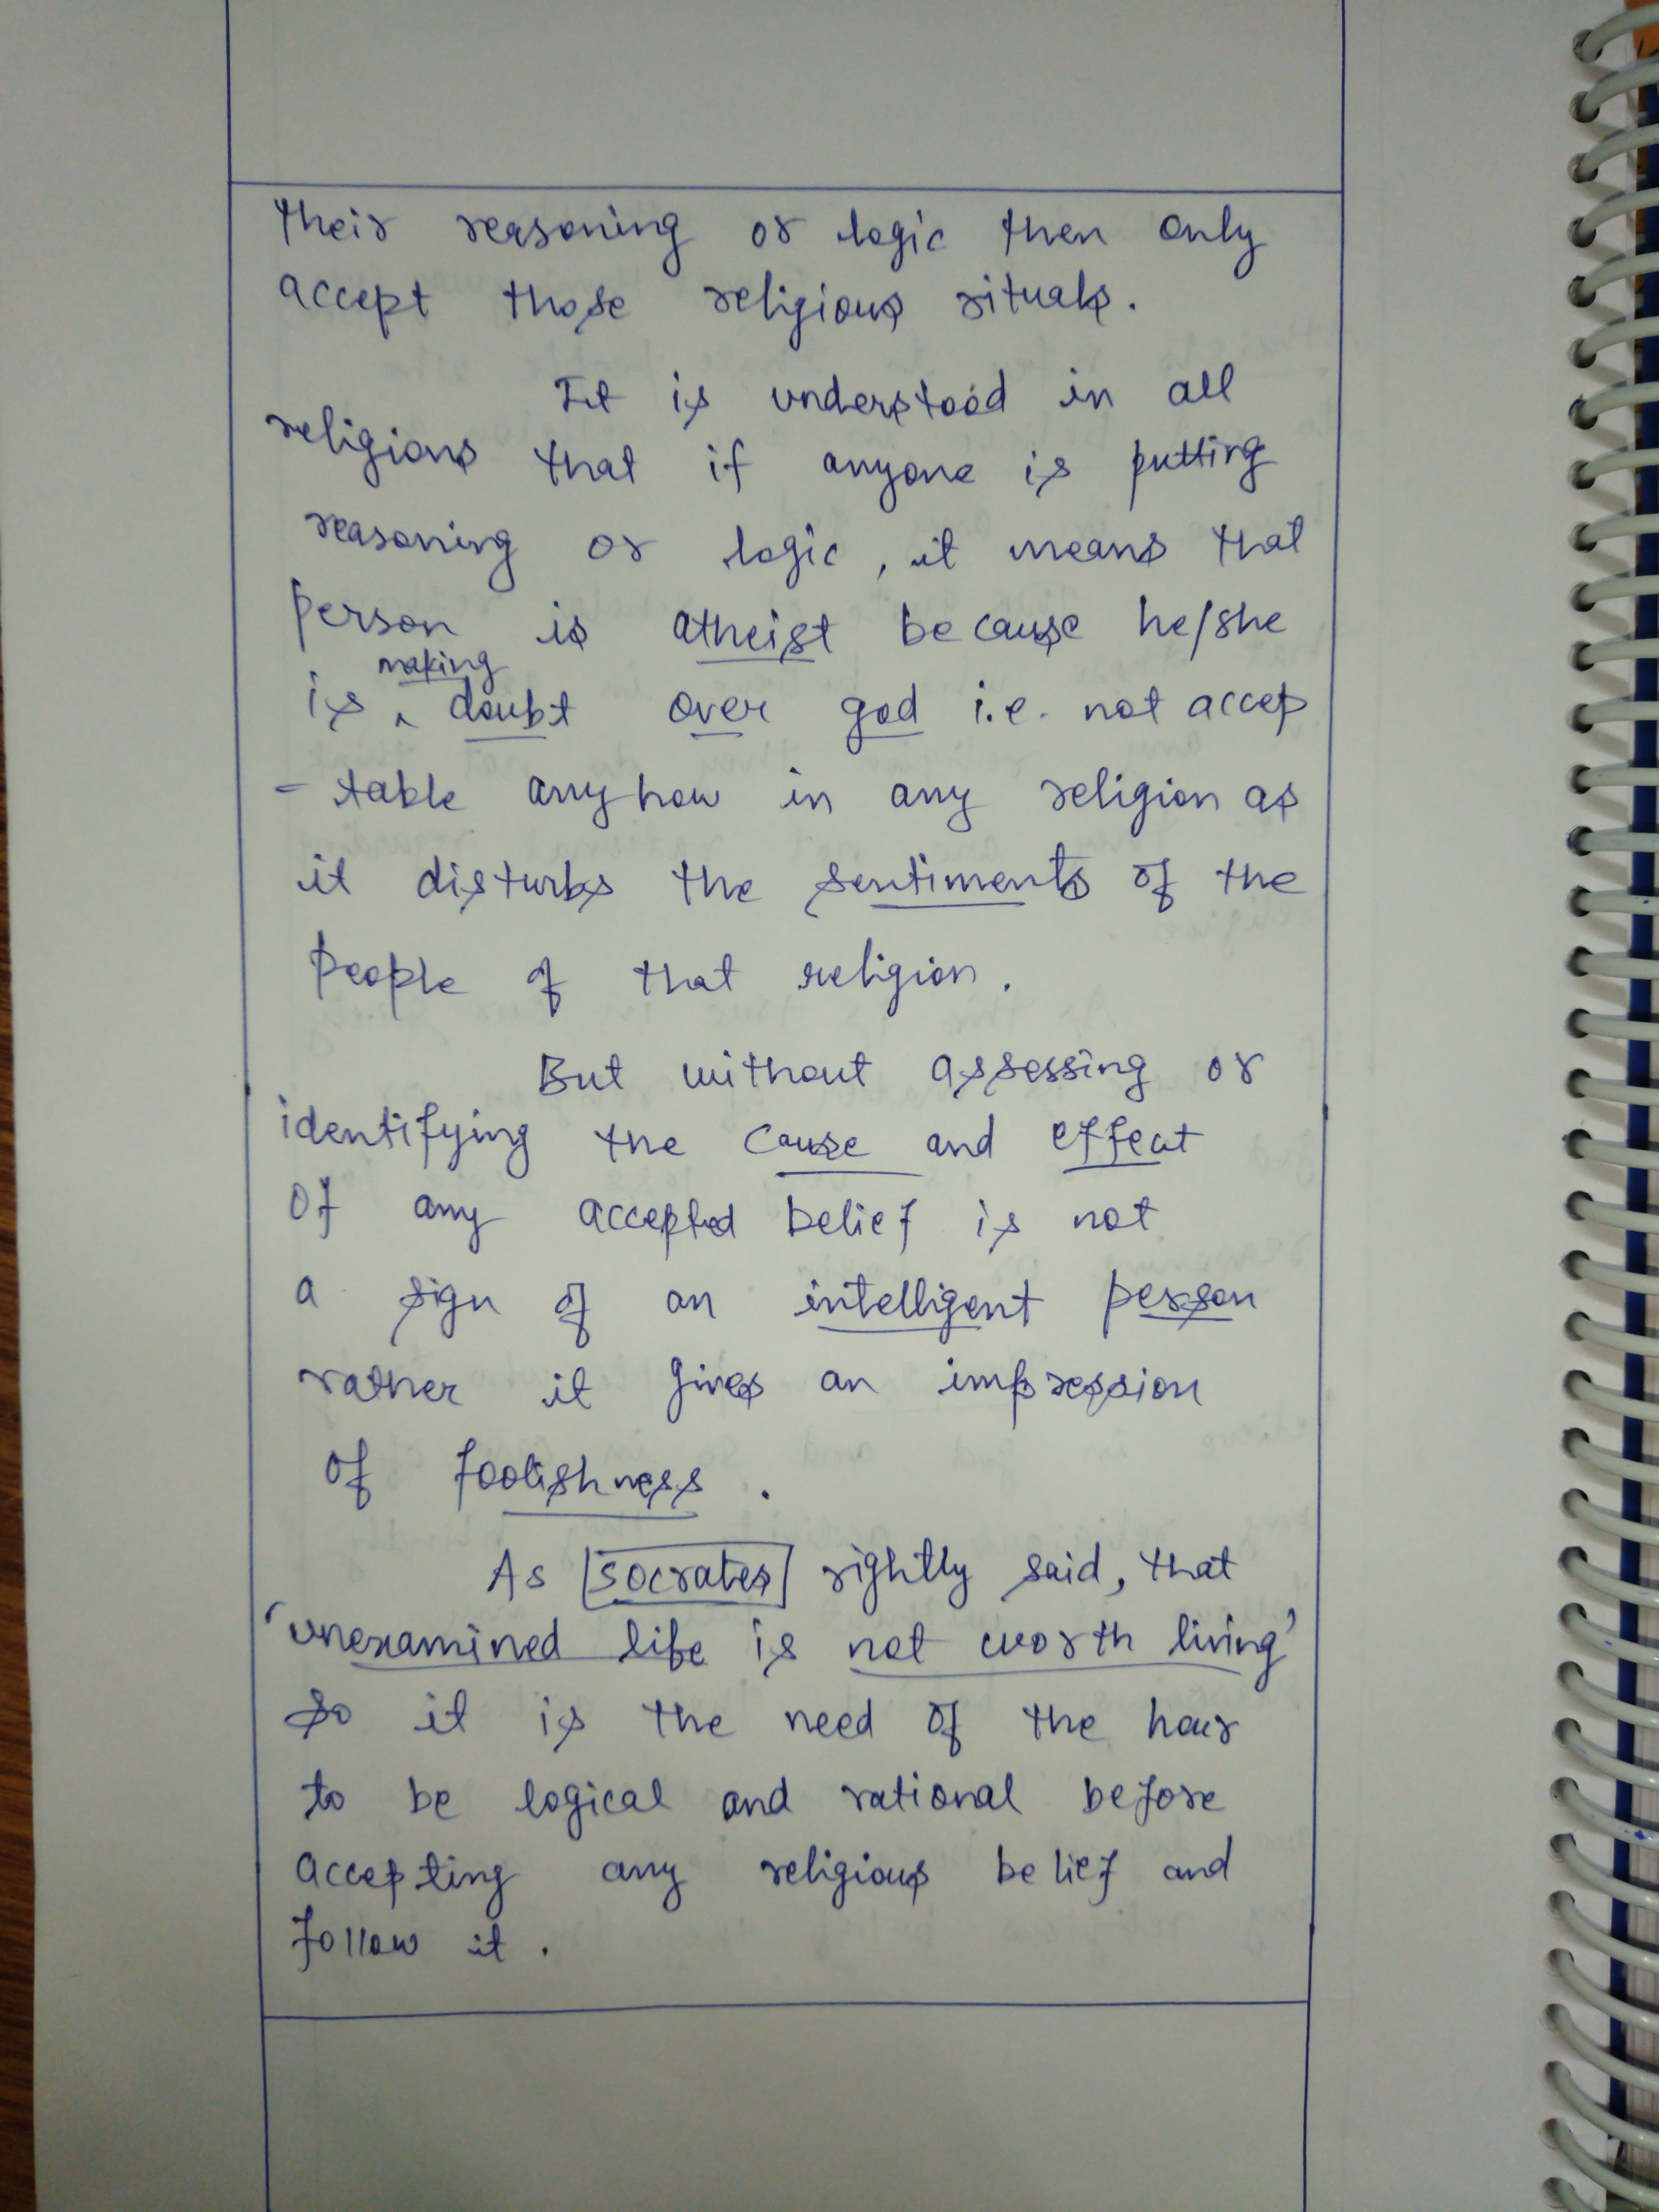 their reasoning or logic then only
accept those religious rituals.
It is understood in all
religions that if anyone is putting
reasoning or logic, it means that
person is atheist because he/she
making
is ^ doubt over god i.e. not accep
- table anyhow in any religion as
it disturbs the sentiments of the
people of that religion.
But without assessing or
identifying the cause and effect
of any accepted belief is not
a sign of an intelligent person
rather it gives an impression
of foolishness.
As socrates rightly said, that
'unexamined life is not worth living'
so it is the need of the hour
to be logical and rational before
accepting any religious belief and
follow it.